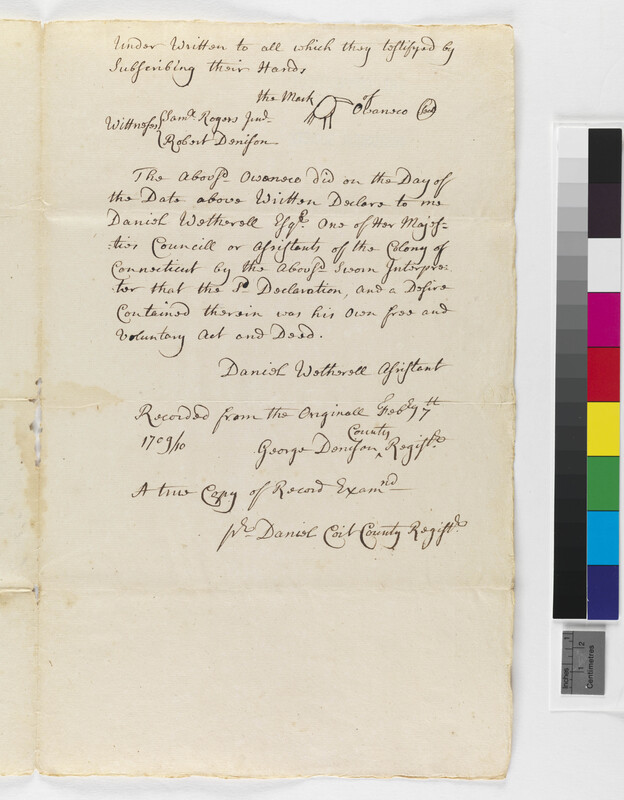 Under Written to all which they testifyed by
Subscribing their Hands
the Mark of
Wittneses Samll Rogers Jund Owaneco Seal
Robert Denison
The Abovsd Owaneco did on the Day of
the Date above Written Declare to me
Daniel Wetherell Esqr One of Her Majes=
=ties Councill or Assistants of the Colony of
Connecticut by the Abovsd Sworn Interpre:
ter that the Sd Declaration, and a Desire
Contained therein was his Own free and
Voluntary Act and Deed.
Daniel Wetherell Assistant
Recorded from the Originall Febry 7th
County
1709/10 George Denison ^ Registr
A true Copy of Record Examnd
pr Daniel Coit County Registr
Inches 1
1 2
Centimetres